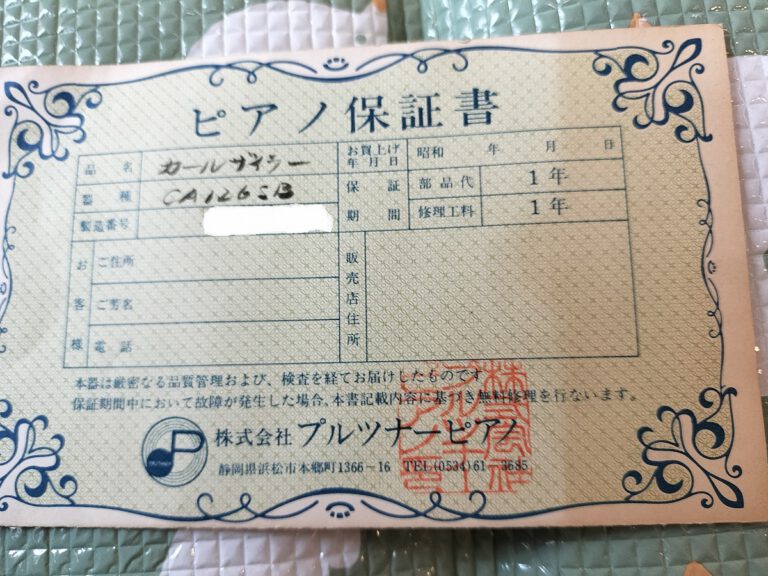 ピアノ保証書
品名 カールザイシー お買上げ年月日 昭和 年 月 日
器種 CA126SB 保証期間 部品代 1年
製造番号 修理工料 1年
お客様 ご住所 販売店住所
ご芳名
電話
本器は厳密なる品質管理および、検査を経てお届けしたものです
保証期間中において故障が発生した場合、本書記載内容に基づき無料修理を行ないます。
株式会社 プルツナーピアノ
静岡県浜松市本郷町1366-16 TEL(0534)61-3685